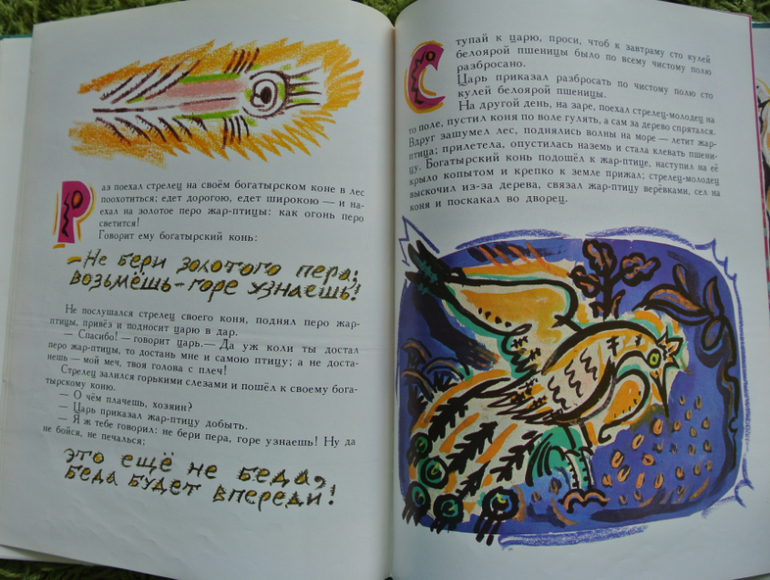 Раз поехал стрелец на своём богатырском коне в лес
поохотиться; едет дорогою, едет широкою — и на-
ехал на золотое перо жар-птицы: как огонь перо
светится!
Говорит ему богатырский конь:
— Не бери золотого пера;
возьмёшь — горе узнаешь!
Не послушался стрелец своего коня, поднял перо жар-
птицы, привёз и подносит царю в дар.
— Спасибо! — говорит царь. — Да уж коли ты достал
перо жар-птицы, то достань мне и самою птицу; а не доста-
нешь — мой меч, твоя голова с плеч!
Стрелец залился горькими слезами и пошёл к своему бога-
тырскому коню.
— О чём плачешь, хозяин?
— Царь приказал жар-птицу добыть.
— Я ж тебе говорил: не бери пера, горе узнаешь! Ну да
не бойся, не печалься:
это ещё не беда,
беда будет впереди!
Ступай к царю, проси, чтоб к завтраму сто кулей
белоярой пшеницы было по всему чистому полю
разбросано.
Царь приказал разбросать по чистому полю сто
кулей белоярой пшеницы.
На другой день, на заре, поехал стрелец-молодец на
то поле, пустил коня по воле гулять, а сам за дерево спрятался.
Вдруг зашумел лес, поднялись волны на море — летит жар-
птица; прилетела, опустилась наземь и стала клевать пшени-
цу. Богатырский конь подошёл к жар-птице, наступил на её
крыло копытом и крепко к земле прижал; стрелец-молодец
выскочил из-за дерева, связал жар-птицу верёвками, сел на
коня и поскакал во дворец.